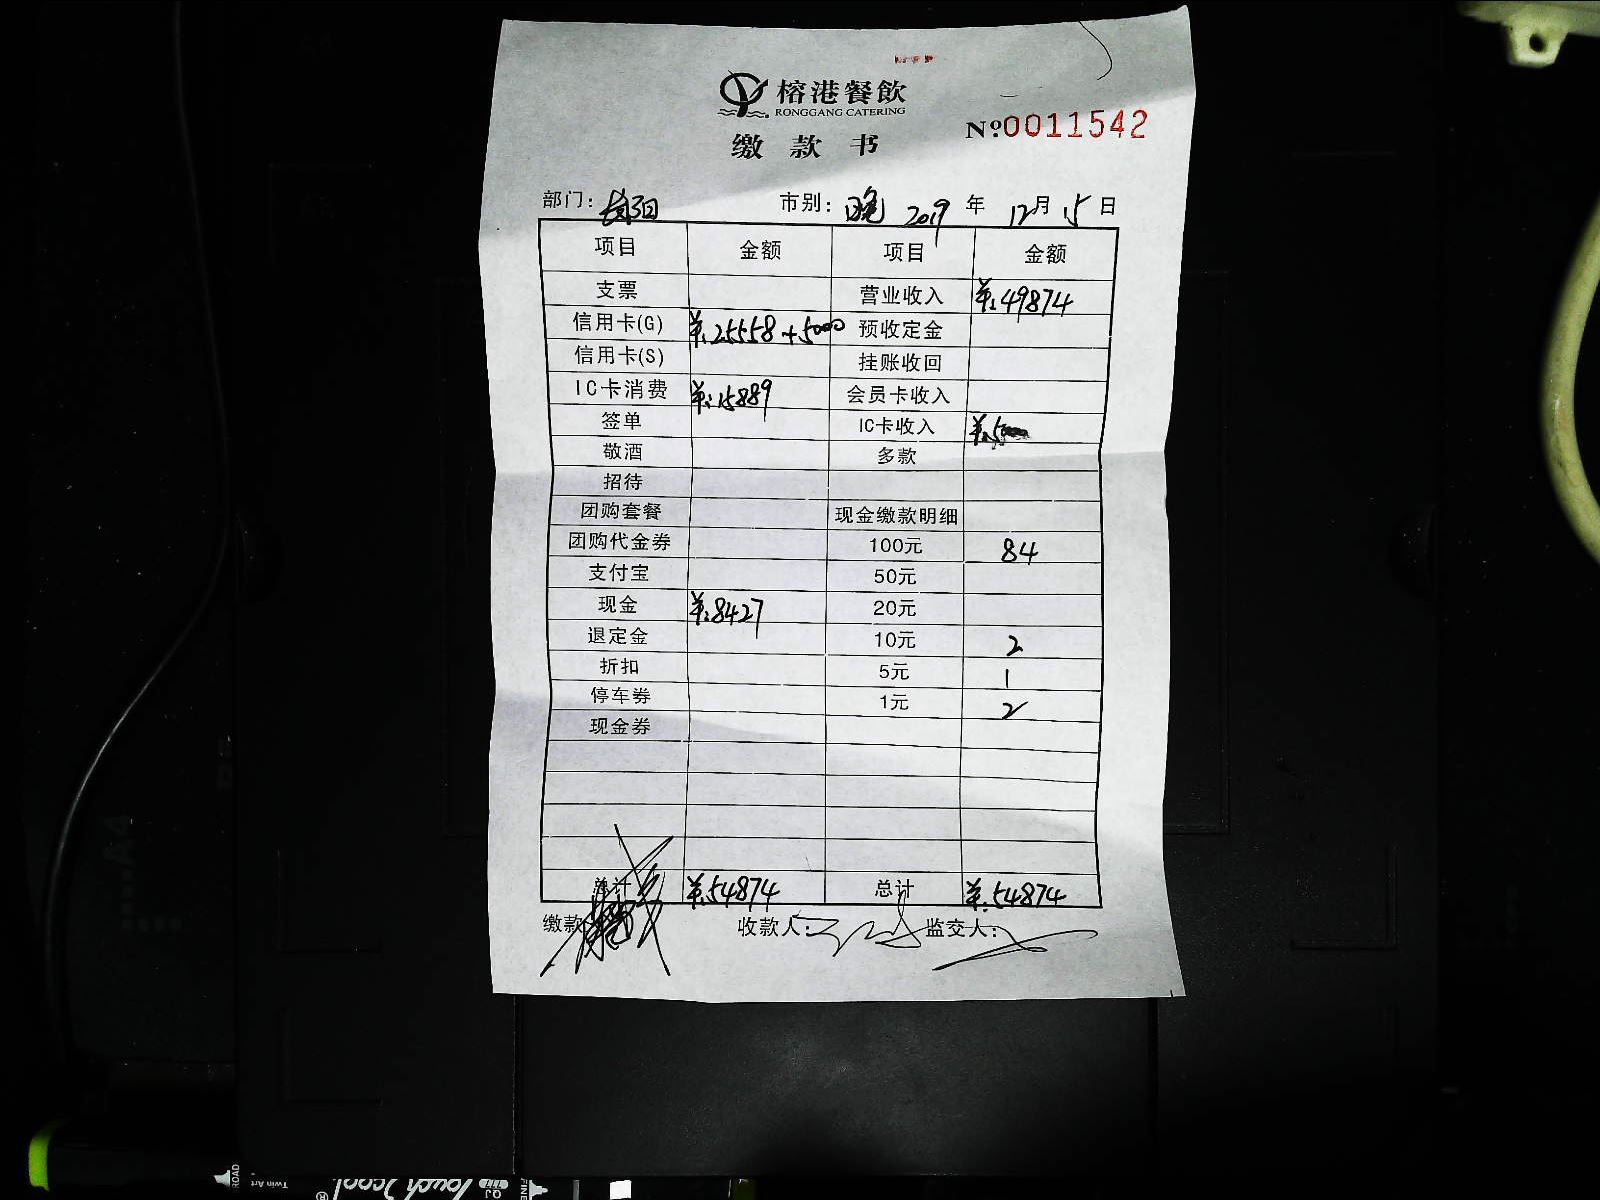 榕港餐飲
RONGGANG CATERING
№0011542
缴款书
部门: 市别: 晚 2019年12月5日
项目 金额 项目 金额
支票 营业收入 ¥:49874
信用卡(G) ¥:25558+5000 预收定金
信用卡(S) 挂账收回
IC卡消费 ¥:15889 会员卡收入
签单 IC卡收入 ¥:5000
敬酒 多款
招待
团购套餐 现金缴款明细
团购代金券 100元 84
支付宝 50元
现金 ¥:8427 20元
退定金 10元 2
折扣 5元 1
停车券 1元 2
现金券
总计 ¥:54874 总计 ¥:54874
缴款 收款人: 监交人: